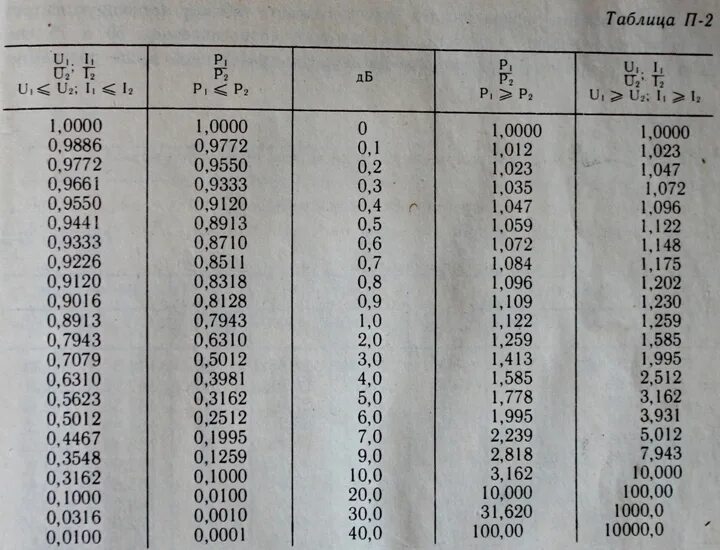 Таблица П-2
U₁/U₂; I₁/I₂ P₁/P₂ дБ P₁/P₂ U₁/U₂; I₁/I₂
U₁ ⩽ U₂; I₁ ⩽ I₂ P₁ ⩽ P₂ P₁ ⩾ P₂ U₁ ⩾ U₂; I₁ ⩾ I₂
1,0000 1,0000 0 1,0000 1,0000
0,9886 0,9772 0,1 1,012 1,023
0,9772 0,9550 0,2 1,023 1,047
0,9661 0,9333 0,3 1,035 1,072
0,9550 0,9120 0,4 1,047 1,096
0,9441 0,8913 0,5 1,059 1,122
0,9333 0,8710 0,6 1,072 1,148
0,9226 0,8511 0,7 1,084 1,175
0,9120 0,8318 0,8 1,096 1,202
0,9016 0,8128 0,9 1,109 1,230
0,8913 0,7943 1,0 1,122 1,259
0,7943 0,6310 2,0 1,259 1,585
0,7079 0,5012 3,0 1,413 1,995
0,6310 0,3981 4,0 1,585 2,512
0,5623 0,3162 5,0 1,778 3,162
0,5012 0,2512 6,0 1,995 3,931
0,4467 0,1995 7,0 2,239 5,012
0,3548 0,1259 9,0 2,818 7,943
0,3162 0,1000 10,0 3,162 10,000
0,1000 0,0100 20,0 10,000 100,00
0,0316 0,0010 30,0 31,620 1000,0
0,0100 0,0001 40,0 100,00 10000,0